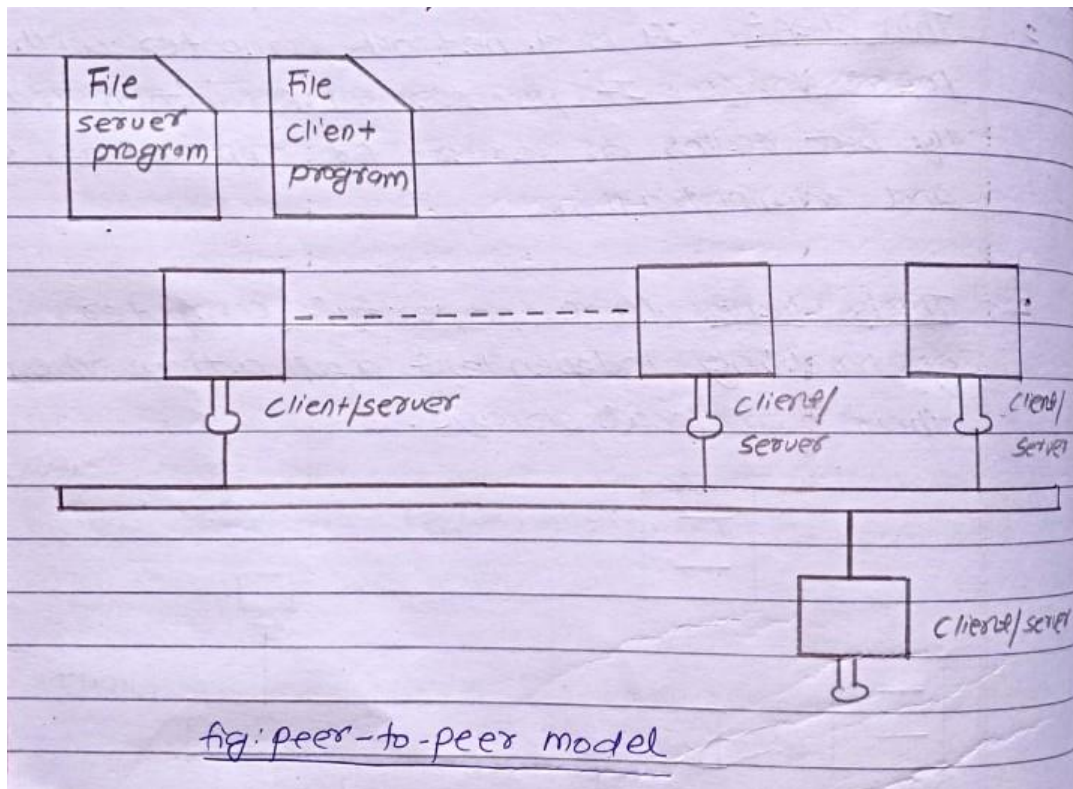 File
server
program
File
client
program
client/server
client/
server
client/
server
client/server
fig: peer-to-peer model